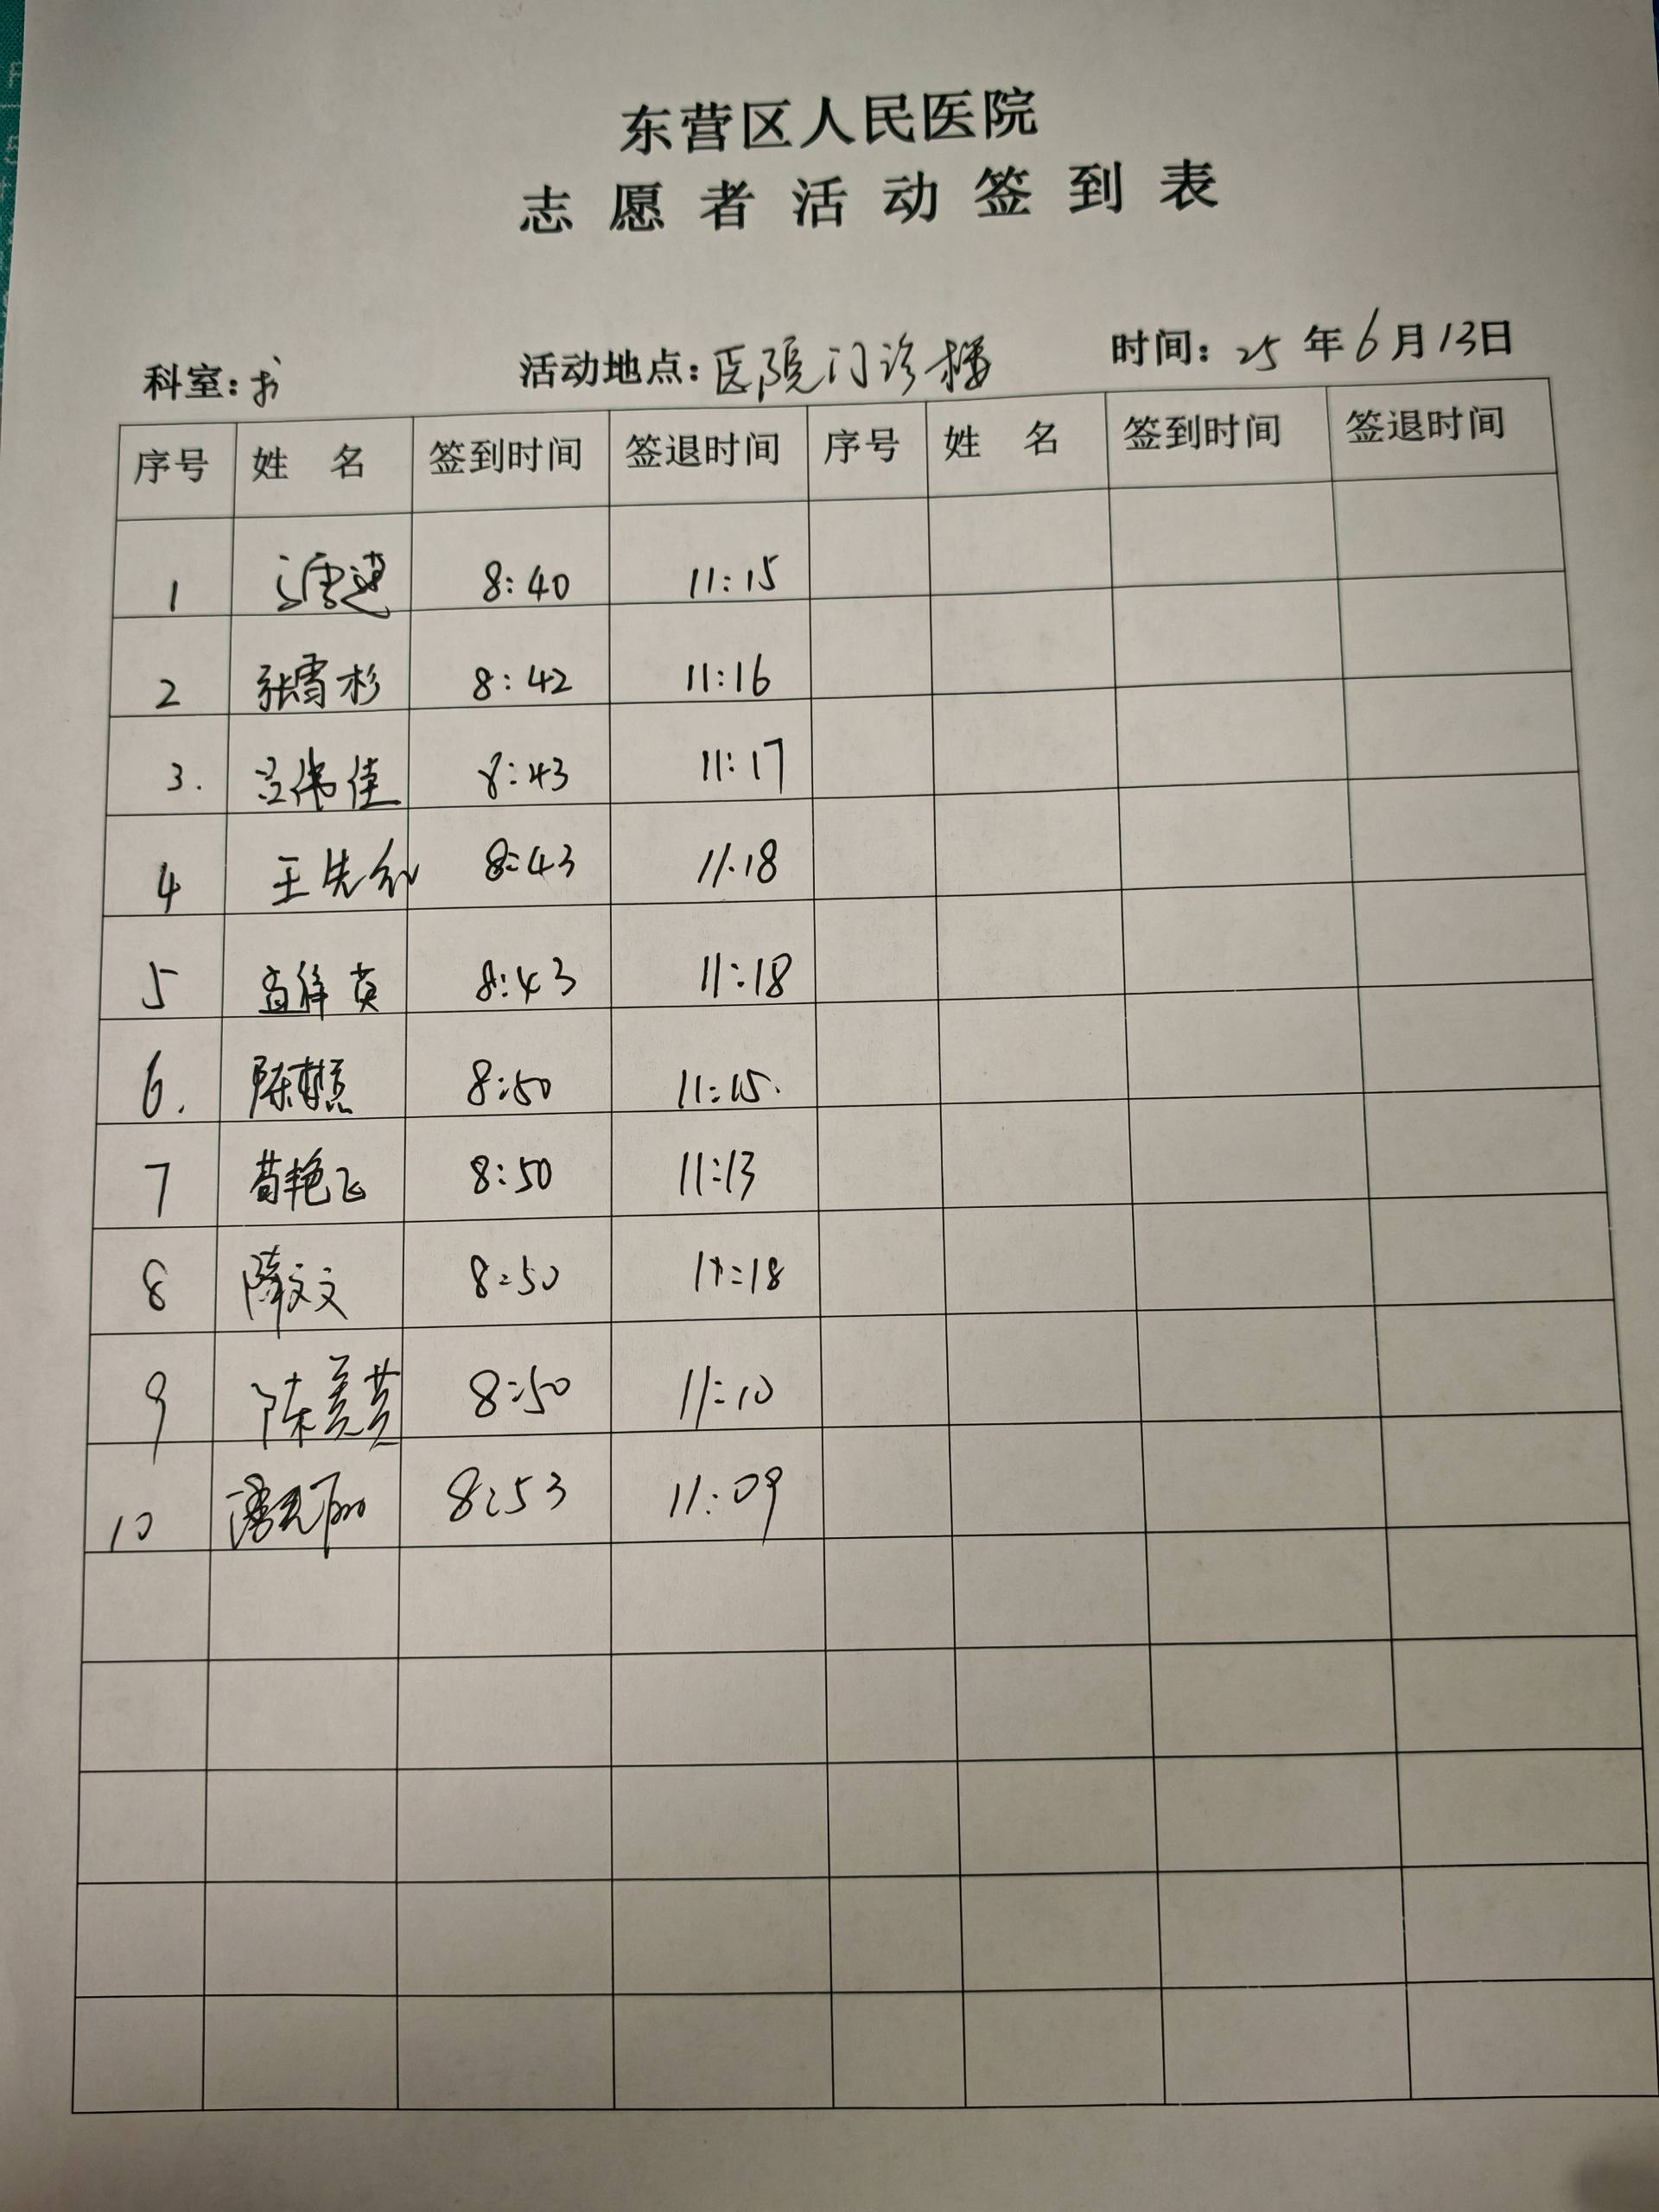 东营区人民医院
志愿者活动签到表
科室: 活动地点:医院门诊楼 时间:25年6月13日
序号 姓名 签到时间 签退时间 序号 姓名 签到时间 签退时间
1 8:40 11:15
2 张雪杉 8:42 11:16
3. 伟佳 8:43 11:17
4 王先红 8:43 11:18
5 英 8:43 11:18
6. 陈慧 8:50 11:15.
7 苟艳飞 8:50 11:13
8 隋文文 8:50 11:18
9 陈美芸 8:50 11:10
10 8:53 11:09